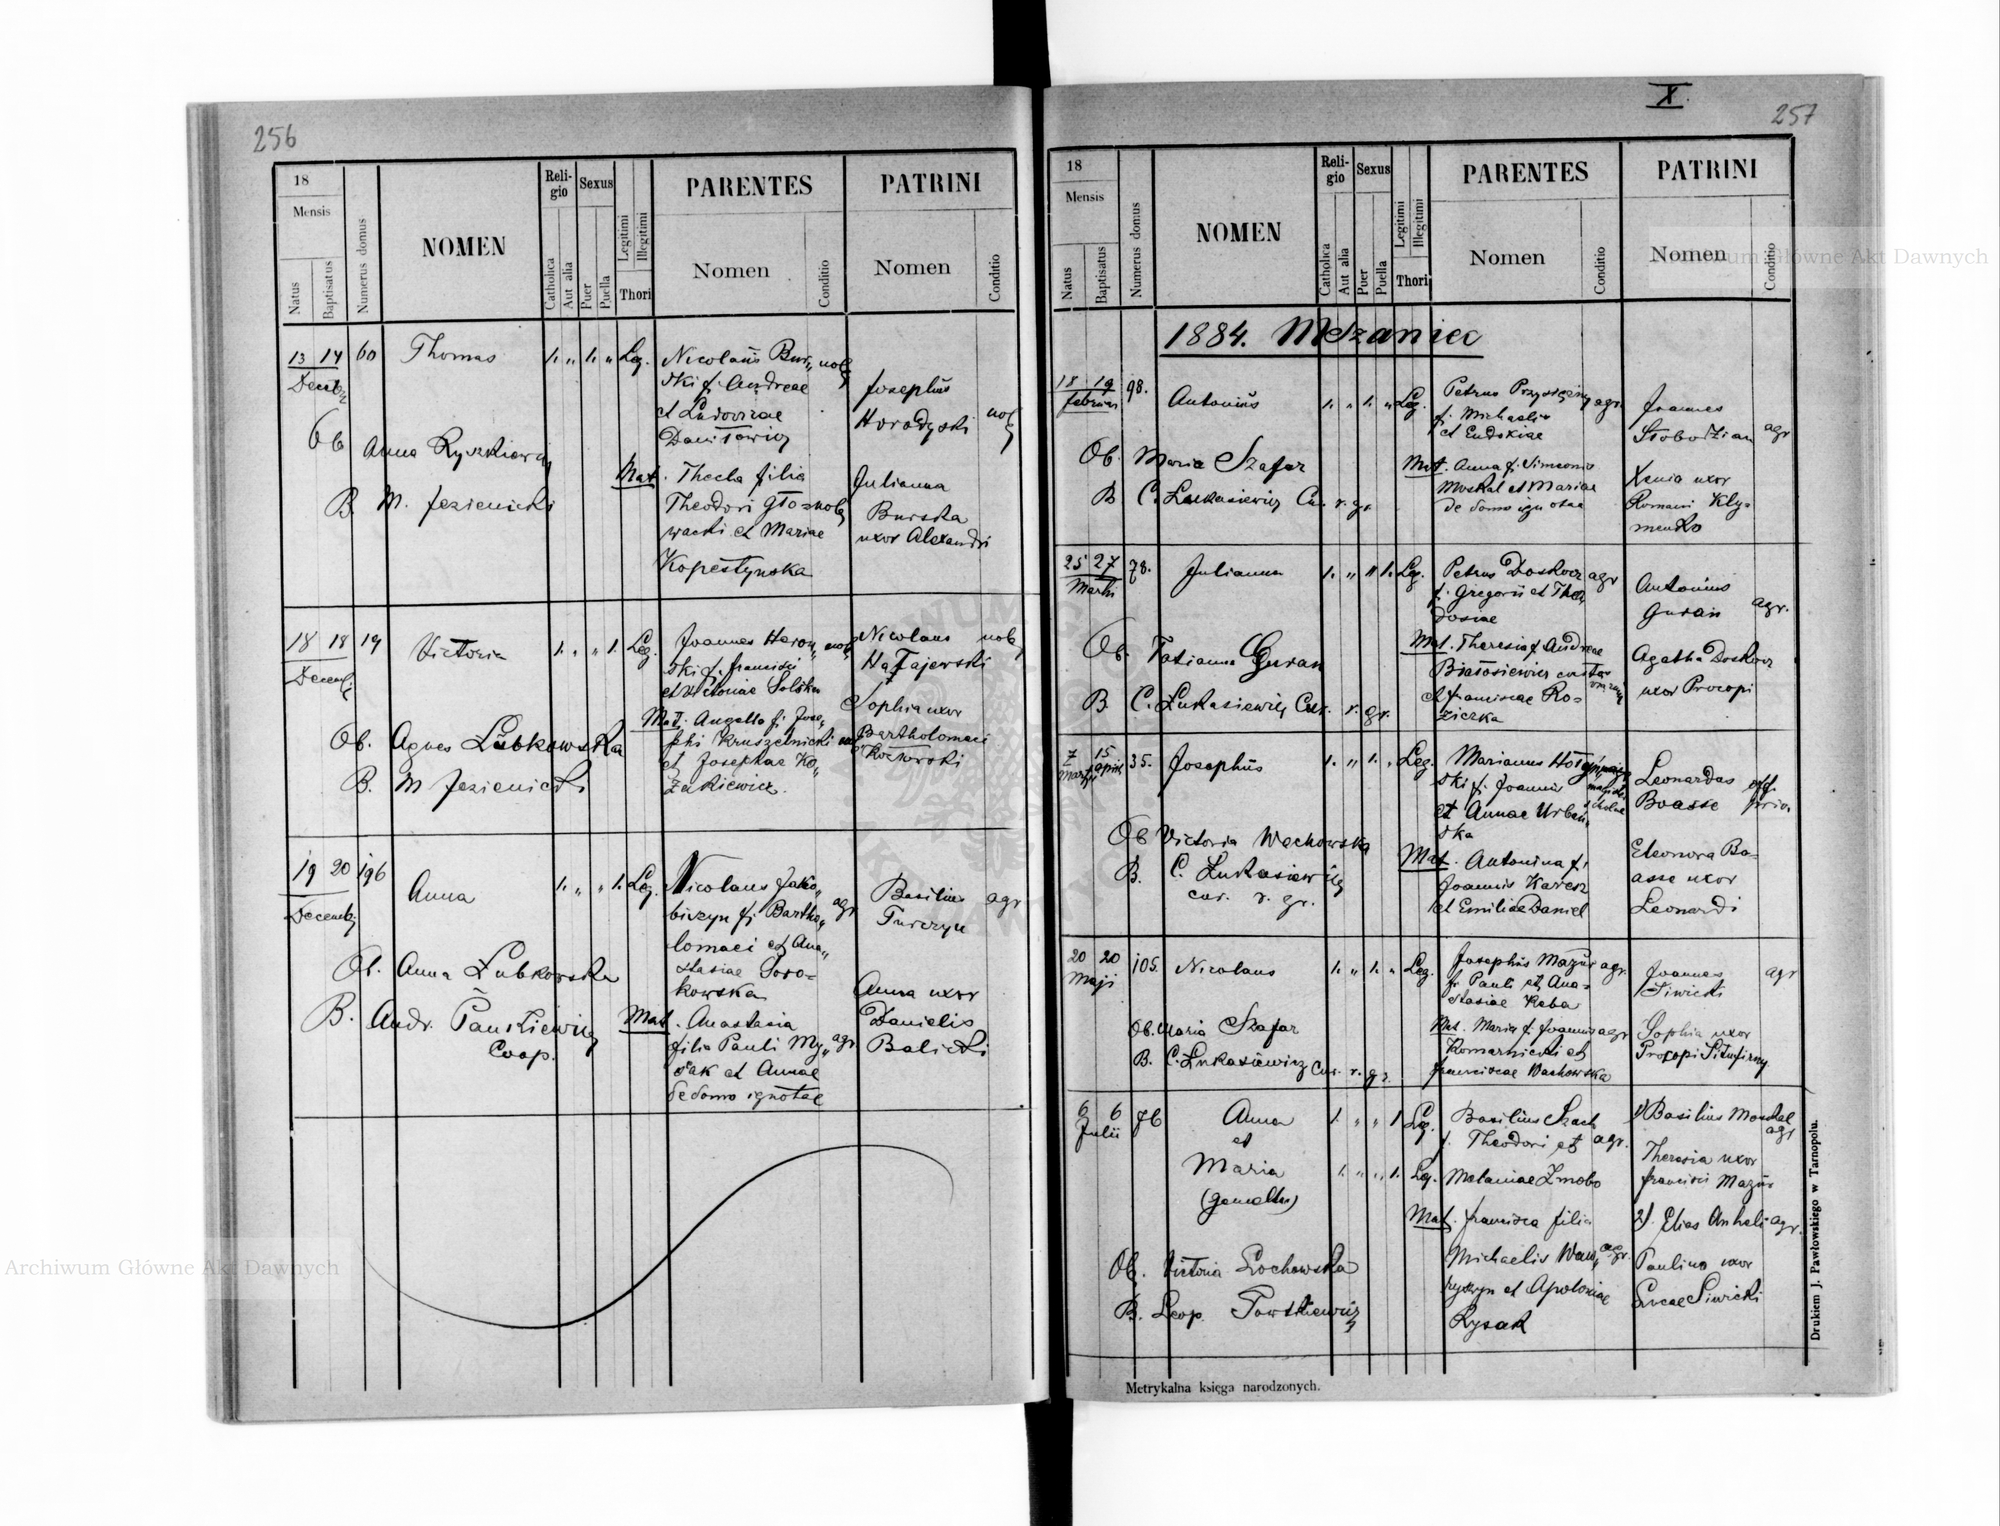 256
18
Mensis
Natus
Baptisatus
Numerus domus
NOMEN
Reli-
gio
Catholica
Aut alia
Sexus
Puer
Puella
Legitimi
Illegitimi
Thori
PARENTES
Nomen
Conditio
PATRINI
Nomen
Conditio
13 14 60 Thomas 1. „ 1. „ Leg.
Decemb
Nicolaus Bur„ nob
ski f. Andreae
et Ludovicae
Daniłowicz
Josephus
Horodyski nob
Ob Anna Ryszkiewicz
B M. Jezienicki
Mat. Thecla filia
Theodori Gło= nob
wacki et Mariae
Kopestynska
Julianna
Burska
uxor Alexandri
18 18 19 Victoria 1. „ „ 1. Leg.
Decemb
Joannes Heron„ nob
ski f. Francisci
et Victoriae Solska
Nicolaus nob
Hatajewski
Sophia uxor
Bartholomaei
Mat. Angella f. Jose„
phi Kruszelnicki nob
et Josephae Ko„
zakiewicz.
Ob. Agnes Łubkowska
B. M Jezienicki
19 20 196 Anna 1. „ „ 1. Leg.
Decemb
Nicolaus Jako„
biczyn f. Bartho„ agr
lomaei et Ana„
stasiae Soro=
kowska
Basilius agr
Turczyn
Ob. Anna Łubkowska
B. Andr. Pauskiewicz
Coop.
Mat. Anastasia
filia Pauli My„ agr
et Annae
de domo ignotae
Anna uxor
Danielis
Balicki
X.
257
18
Mensis
Natus
Baptisatus
Numerus domus
NOMEN
Reli-
gio
Catholica
Aut alia
Sexus
Puer
Puella
Legitimi
Illegitimi
Thori
PARENTES
Nomen
Conditio
PATRINI
Nomen
Conditio
1884. Mszaniec
18 19 98. Antonius 1. „ 1. „ Leg.
Februar
Petrus agr.
f. Michaelis
et Eudokiae
Joannes
Słobodzian agr
Ob. Maria Szafar
B C. Łukasiewicz Cur. r. gr.
Mat. Anna f. Simeonis
Moskal et Mariae
de domo ignotae
Xenia uxor
Romani Kly=
menko
25 27 78. Julianna 1. „ „ 1. Leg.
Martii
Petrus Doskocz agr
f. Gregorii et Theo
dosiae
Antonius
Guran agr.
Ob. Tatianna Guran
B C. Łukasiewicz Cur. r. gr.
Mat. Theresia f. Andreae
Białosiewicz
et Franciscae Ro=
ziczka
Agatha Doskocz
uxor Procopi
7 15 35. Josephus 1. „ 1. „ Leg.
Martii April
Marianus
ski f. Joannis
et Annae Urbań„
ska
Leonardus off.
Boasse priv.
Ob Victoria Wochowska
B. C. Łukasiewicz
cur. r. gr.
Mat. Antonina f.
Joannis Karesz
et Emiliae Daniel
Eleonora Bo=
asse uxor
Leonardi
20 20 105. Nicolaus 1. „ 1. „ Leg.
Maji
Josephus Mazur agr.
f. Pauli et Ana=
stasiae Keba
Joannes agr
Siwicki
Ob. Maria Szafar
B. C. Łukasiewicz Cur. r. gr.
Mat. Maria f. Joannis agr
Komarnicki et
Franciscae Wachowska
Sophia uxor
Procopi
6 6 76 Anna 1. „ „ 1 Leg.
Julii
et
Maria 1. „ „ 1. Leg.
(gemellae)
Basilius Szach
f. Theodori et agr.
Melaniae Zmobo
1) Basilius Moskal
agr
Theresia uxor
Francisci Mazur
Mat. Francisca filia
Michaelis Waw„ agr.
ryczyn et Apoloniae
Rysak
2). Elias Anheli agr.
Paulina uxor
Lucae Siwicki
Ob. Victoria Lochowska
B. Leop.
Metrykalna księga narodzonych.
Drukiem J. Pawłowskiego w Tarnopolu.
Archiwum Główne Akt Dawnych
Archiwum Główne Akt Dawnych